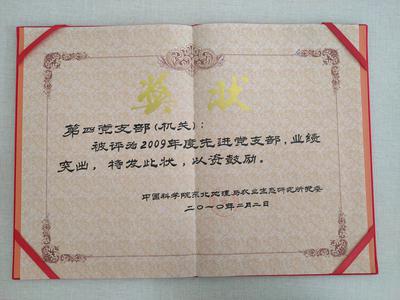 奖状
第四党支部（机关）：
被评为2009年度先进党支部，业绩
突出，特发此状，以资鼓励。
中国科学院东北地理与农业生态研究所党委
二〇一〇年二月二日